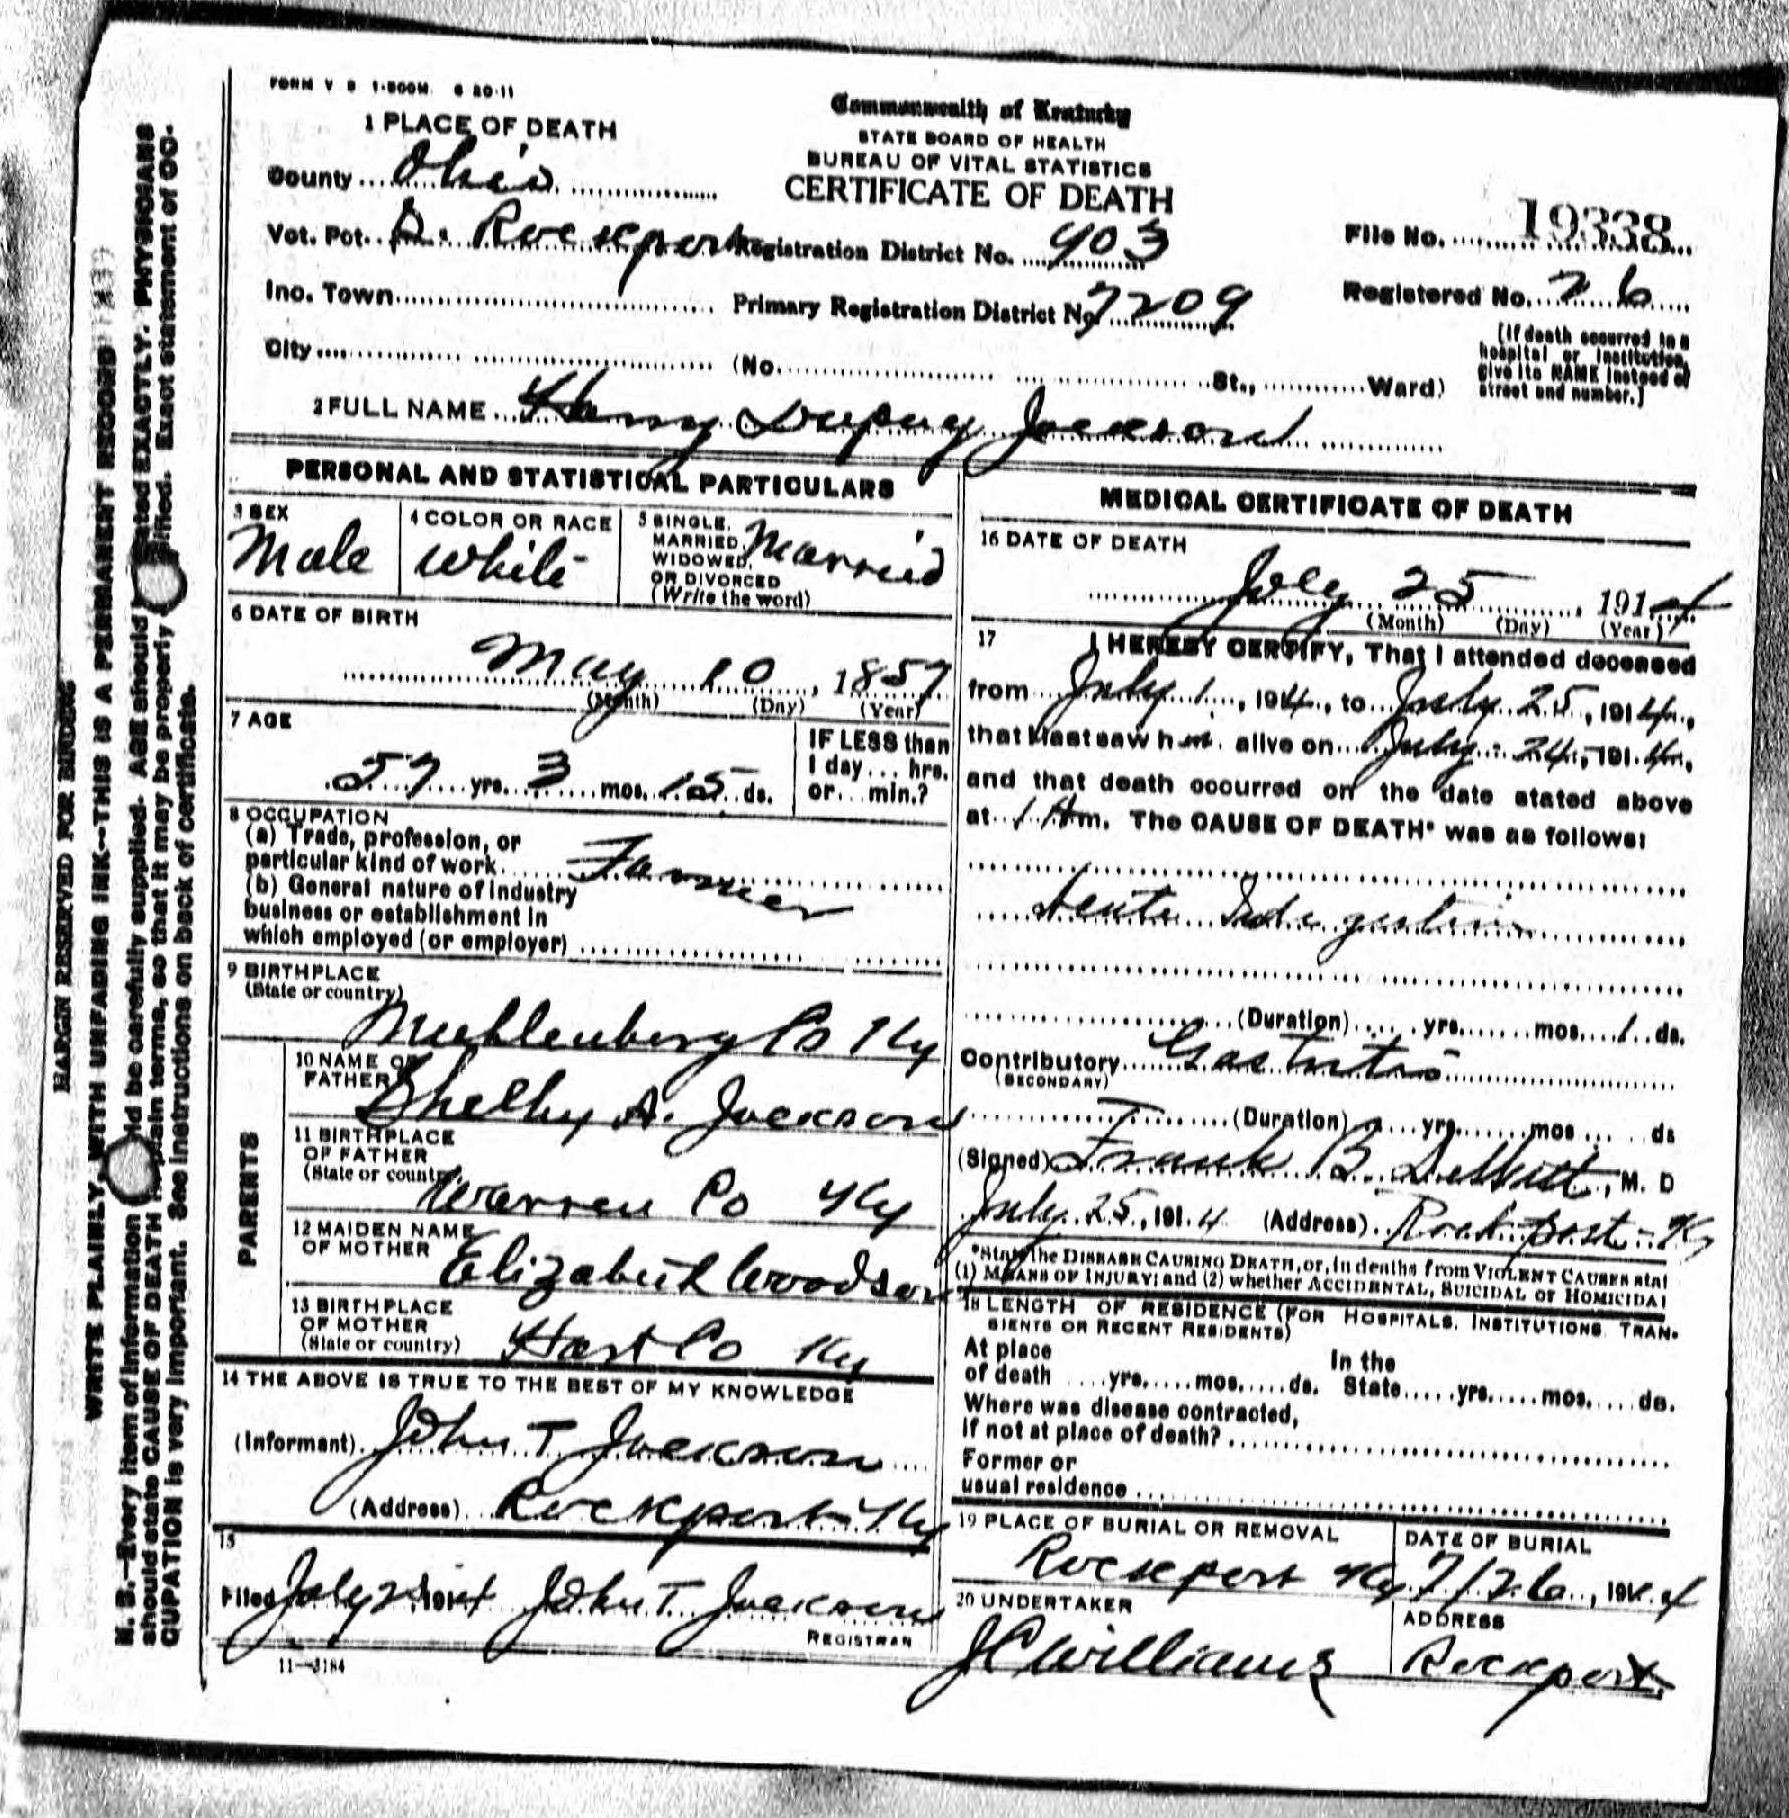 FORM V S 1-500M. 6 20-11
Commonwealth of Kentucky
STATE BOARD OF HEALTH
BUREAU OF VITAL STATISTICS
CERTIFICATE OF DEATH
1 PLACE OF DEATH
County Ohio
Vot. Pct. Rockport Registration District No. 903
File No. 19338
Inc. Town Primary Registration District No. 7209
Registered No. 26
City (No. St., Ward)
(If death occurred in a
hospital or institution,
give its NAME instead of
street and number.)
2 FULL NAME Henry Dupuy Jackson
PERSONAL AND STATISTICAL PARTICULARS
3 SEX
Male
4 COLOR OR RACE
White
5 SINGLE,
MARRIED,
WIDOWED,
OR DIVORCED
(Write the word)
Married
6 DATE OF BIRTH
May 10, 1857
(Month) (Day) (Year)
7 AGE
57 yrs. 3 mos. 15 ds.
IF LESS than
1 day ... hrs.
or ... min.?
8 OCCUPATION
(a) Trade, profession, or
particular kind of work Farmer
(b) General nature of industry
business or establishment in
which employed (or employer)
9 BIRTHPLACE
(State or country)
Muhlenberg Co Ky
PARENTS
10 NAME OF
FATHER
Shelby A. Jackson
11 BIRTHPLACE
OF FATHER
(State or country)
Warren Co Ky
12 MAIDEN NAME
OF MOTHER
Elizabeth Woodson
13 BIRTHPLACE
OF MOTHER
(State or country)
Hart Co Ky
14 THE ABOVE IS TRUE TO THE BEST OF MY KNOWLEDGE
(Informant) John T Jackson
(Address) Rockport Ky
15
Filed July 1914 John T. Jackson
REGISTRAR
11—3184
MEDICAL CERTIFICATE OF DEATH
16 DATE OF DEATH
July 25, 1914
(Month) (Day) (Year)
17 I HEREBY CERTIFY, That I attended deceased
from July 1, 1914, to July 25, 1914,
that I last saw him alive on July 24, 1914,
and that death occurred on the date stated above
at 1 A m. The CAUSE OF DEATH* was as follows:
Acute Indigestion
(Duration) yrs. mos. 1 ds.
Contributory Gastritis
(SECONDARY)
(Duration) yrs. mos. ds
(Signed) Frank B. M. D
July 25, 1914 (Address) Rockport - Ky
*State the DISEASE CAUSING DEATH, or, in deaths from VIOLENT CAUSES stat
(1) MEANS OF INJURY; and (2) whether ACCIDENTAL, SUICIDAL or HOMICIDAL
18 LENGTH OF RESIDENCE (FOR HOSPITALS, INSTITUTIONS, TRAN-
SIENTS OR RECENT RESIDENTS)
At place of death yrs. mos. ds. In the State yrs. mos. ds.
Where was disease contracted,
if not at place of death?
Former or
usual residence
19 PLACE OF BURIAL OR REMOVAL
Rockport Ky
DATE OF BURIAL
7/26, 1914
20 UNDERTAKER
JC Williams
ADDRESS
Rockport
MARGIN RESERVED FOR BINDING
WRITE PLAINLY, WITH UNFADING INK—THIS IS A PERMANENT RECORD
N. B.—Every item of information should be carefully supplied. AGE should be stated EXACTLY. PHYSICIANS
should state CAUSE OF DEATH in plain terms, so that it may be properly classified. Exact statement of OC-
CUPATION is very important. See instructions on back of certificate.